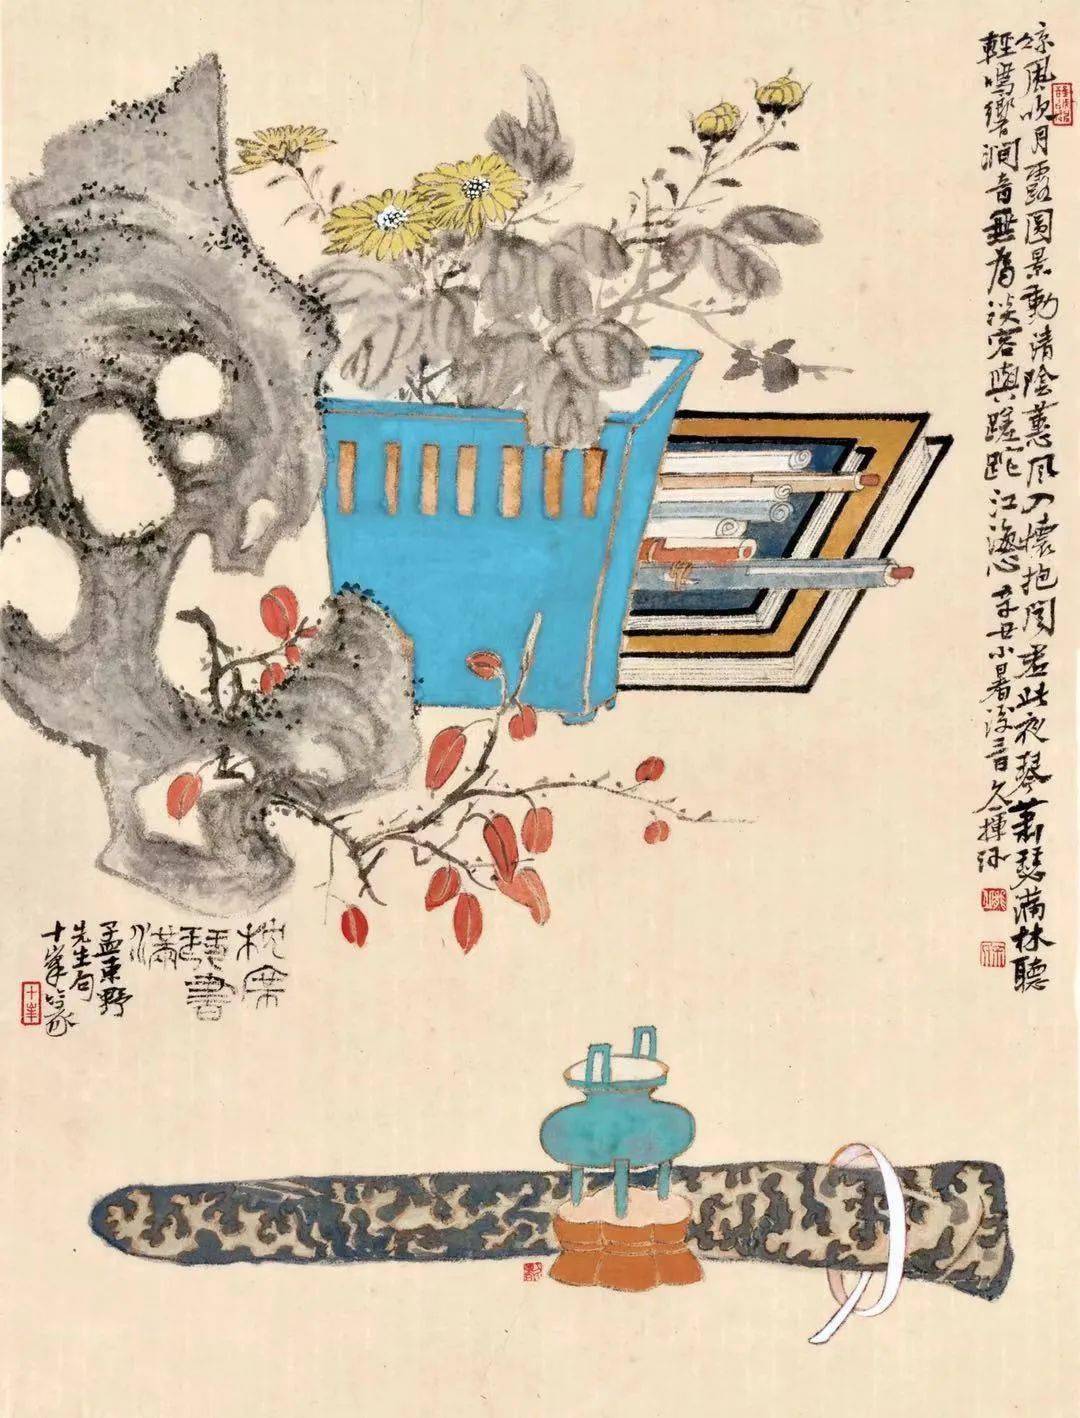 凉風吹月露圓景動清陰蕙風入懷抱聞君此夜琴蕭瑟滿林聽
輕鳴響澗音無為淡容與蹉跎江海心 辛丑小暑揮汗
枕席
琴書
滿
孟東野
先生句
十峯篆
十峯